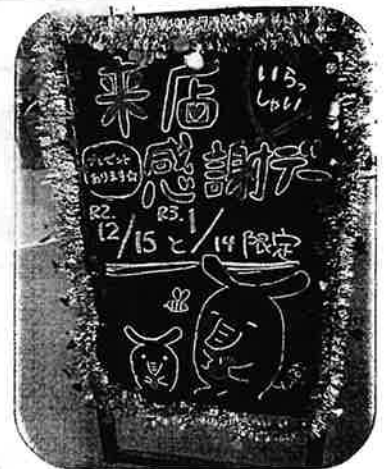 来店
いらっ
しゃい
プレゼント
あります☆
感謝デー
R2.
12/15と
R3.
1/14限定